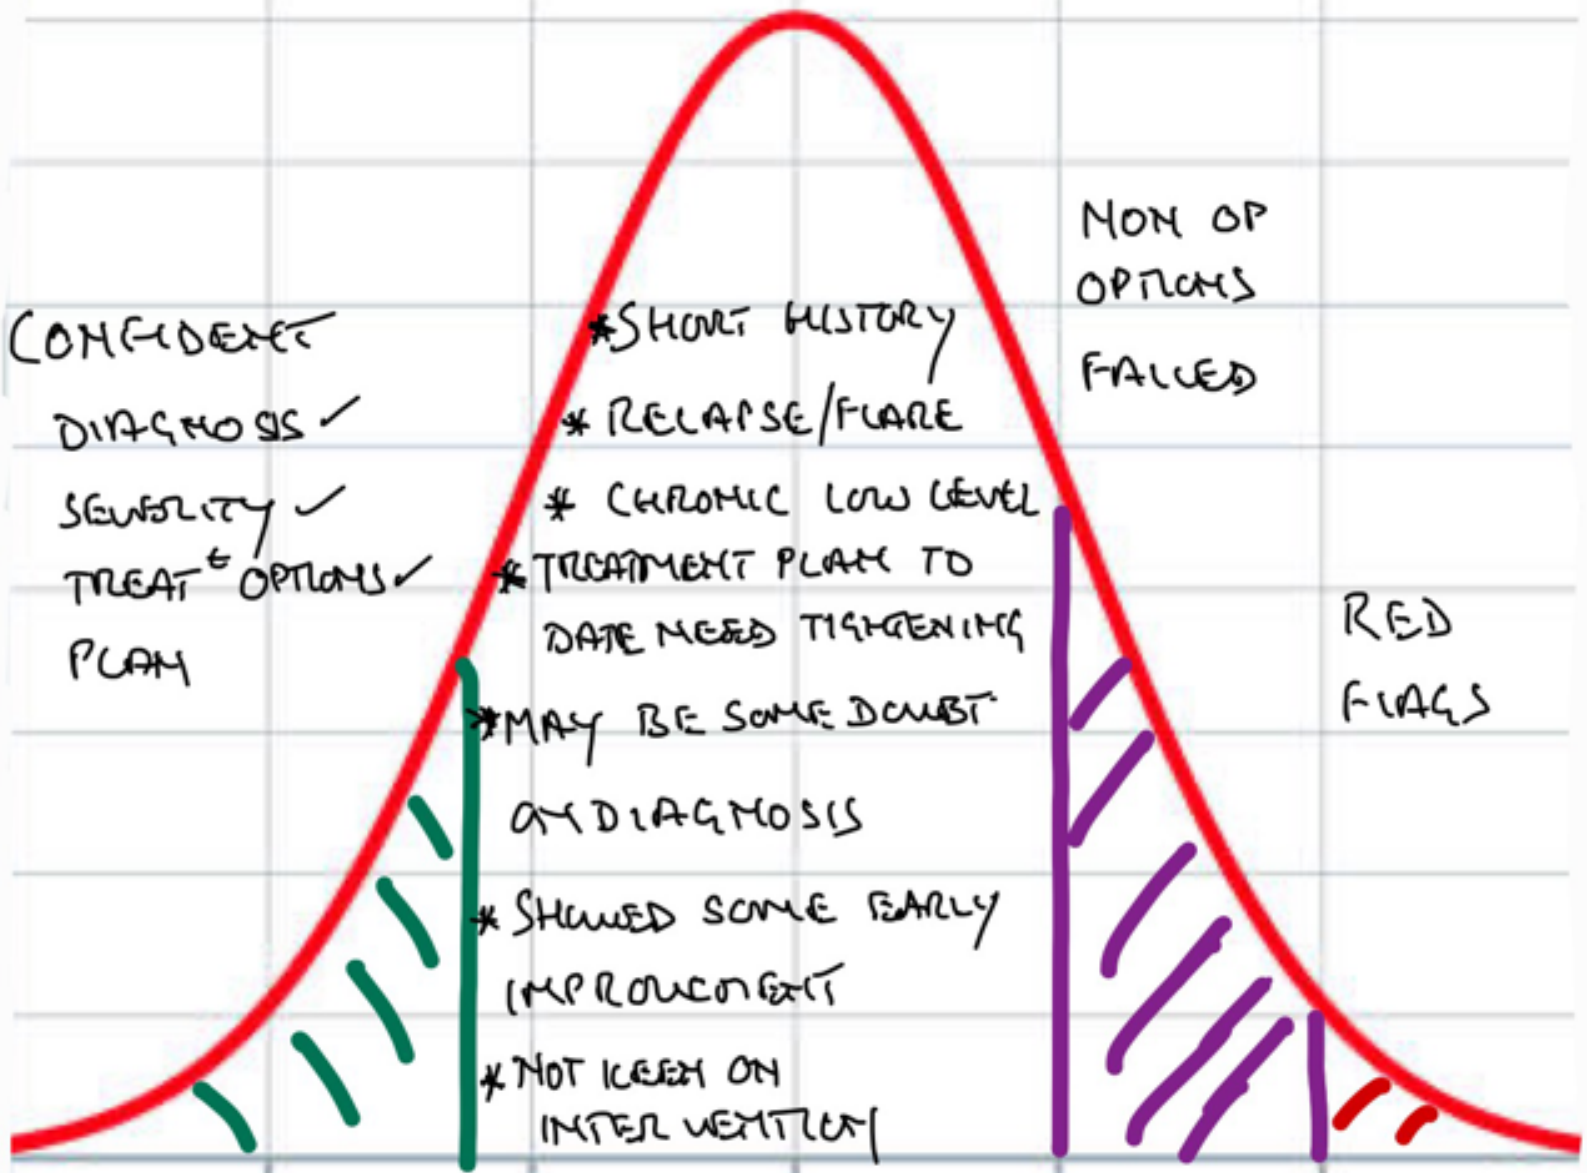 CONFIDENT
DIAGNOSIS ✓
SEVERITY ✓
TREATᵗ OPTIONS ✓
PLAN
*SHORT HISTORY
* RELAPSE/FLARE
* CHRONIC LOW LEVEL
* TREATMENT PLAN TO
DATE NEED TIGHTENING
*MAY BE SOME DOUBT
ON DIAGNOSIS
* SHOWED SOME EARLY
IMPROVEMENT
* NOT KEEN ON
INTERVENTION
NON OP
OPTIONS
FAILED
RED
FLAGS